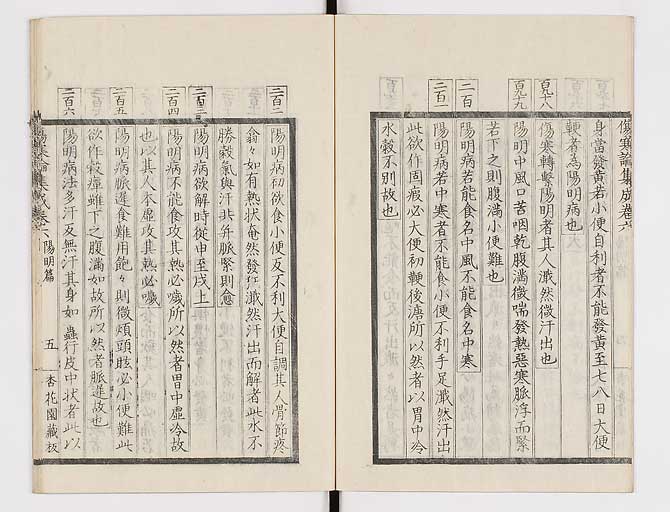 傷寒論集成卷六
身當發黃若小便自利者不能發黃至七八日大便
鞕者為陽明病也
百九十八
傷寒轉繫陽明者其人濈然微汗出也
百九十九
陽明中風口苦咽乾腹滿微喘發熱惡寒脈浮而緊
若下之則腹滿小便難也
二百
陽明病若能食名中風不能食名中寒
二百一
陽明病若中寒者不能食小便不利手足濈然汗出
此欲作固瘕必大便初鞕後溏所以然者以胃中冷
水穀不別故也
二百二
陽明病初欲食小便反不利大便自調其人骨節疼
翕々如有熱狀奄然發狂濈然汗出而解者此水不
勝穀氣與汗共并脈緊則愈
二百三
陽明病欲解時從申至戌上
二百四
陽明病不能食攻其熱必噦所以然者胃中虛冷故
也以其人本虛攻其熱必噦
二百五
陽明病脈遲食難用飽々則微煩頭眩必小便難此
欲作穀癉雖下之腹滿如故所以然者脈遲故也
二百六
陽明病法多汗反無汗其身如蟲行皮中狀者此以
傷寒論集成卷六 陽明篇 五 杏花園藏板